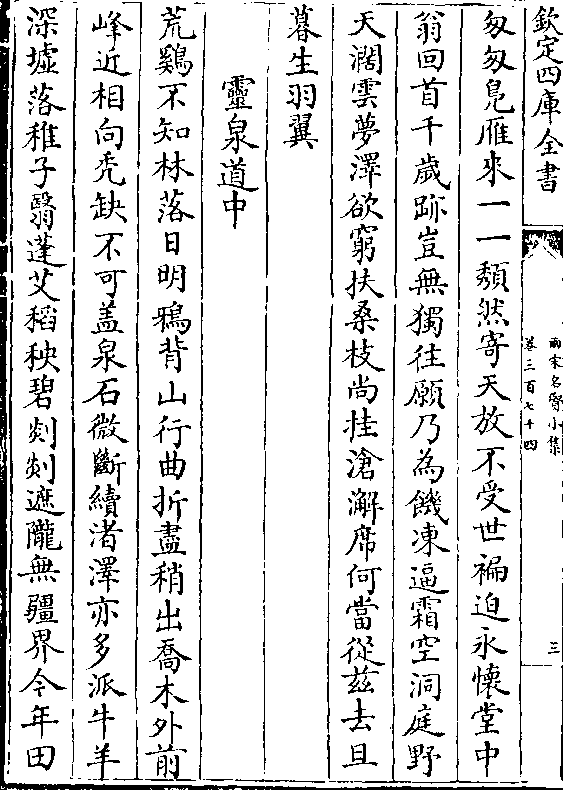 欽定四庫全書
兩宋名賢小集
卷三百七十四
三
匆匆鳬雁來一一頽然寄天放不受世褊迫永懷堂中
翁回首千歲跡豈無獨往願乃為饑凍逼霜空洞庭野
天濶雲夢澤欲窮扶桑枝尚挂滄澥席何當從兹去旦
暮生羽翼
靈泉道中
荒鷄不知林落日明鴉背山行曲折盡稍出喬木外前
峰近相向秃缺不可盖泉石微斷續渚澤亦多派牛羊
深墟落稚子翳蓬艾稻秧碧剡剡遮隴無疆界今年田